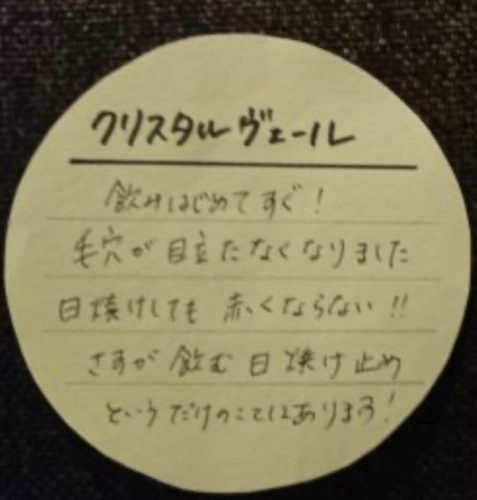 クリスタルヴェール
飲みはじめてすぐ!
毛穴が目立たなくなりました
日焼けしても 赤くならない!!
さすが 飲む日焼け止め
というだけのことはあります!